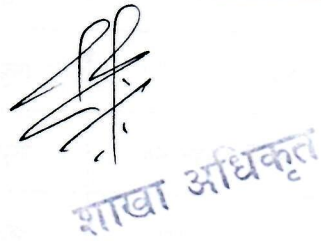 शाखा अधिकृत